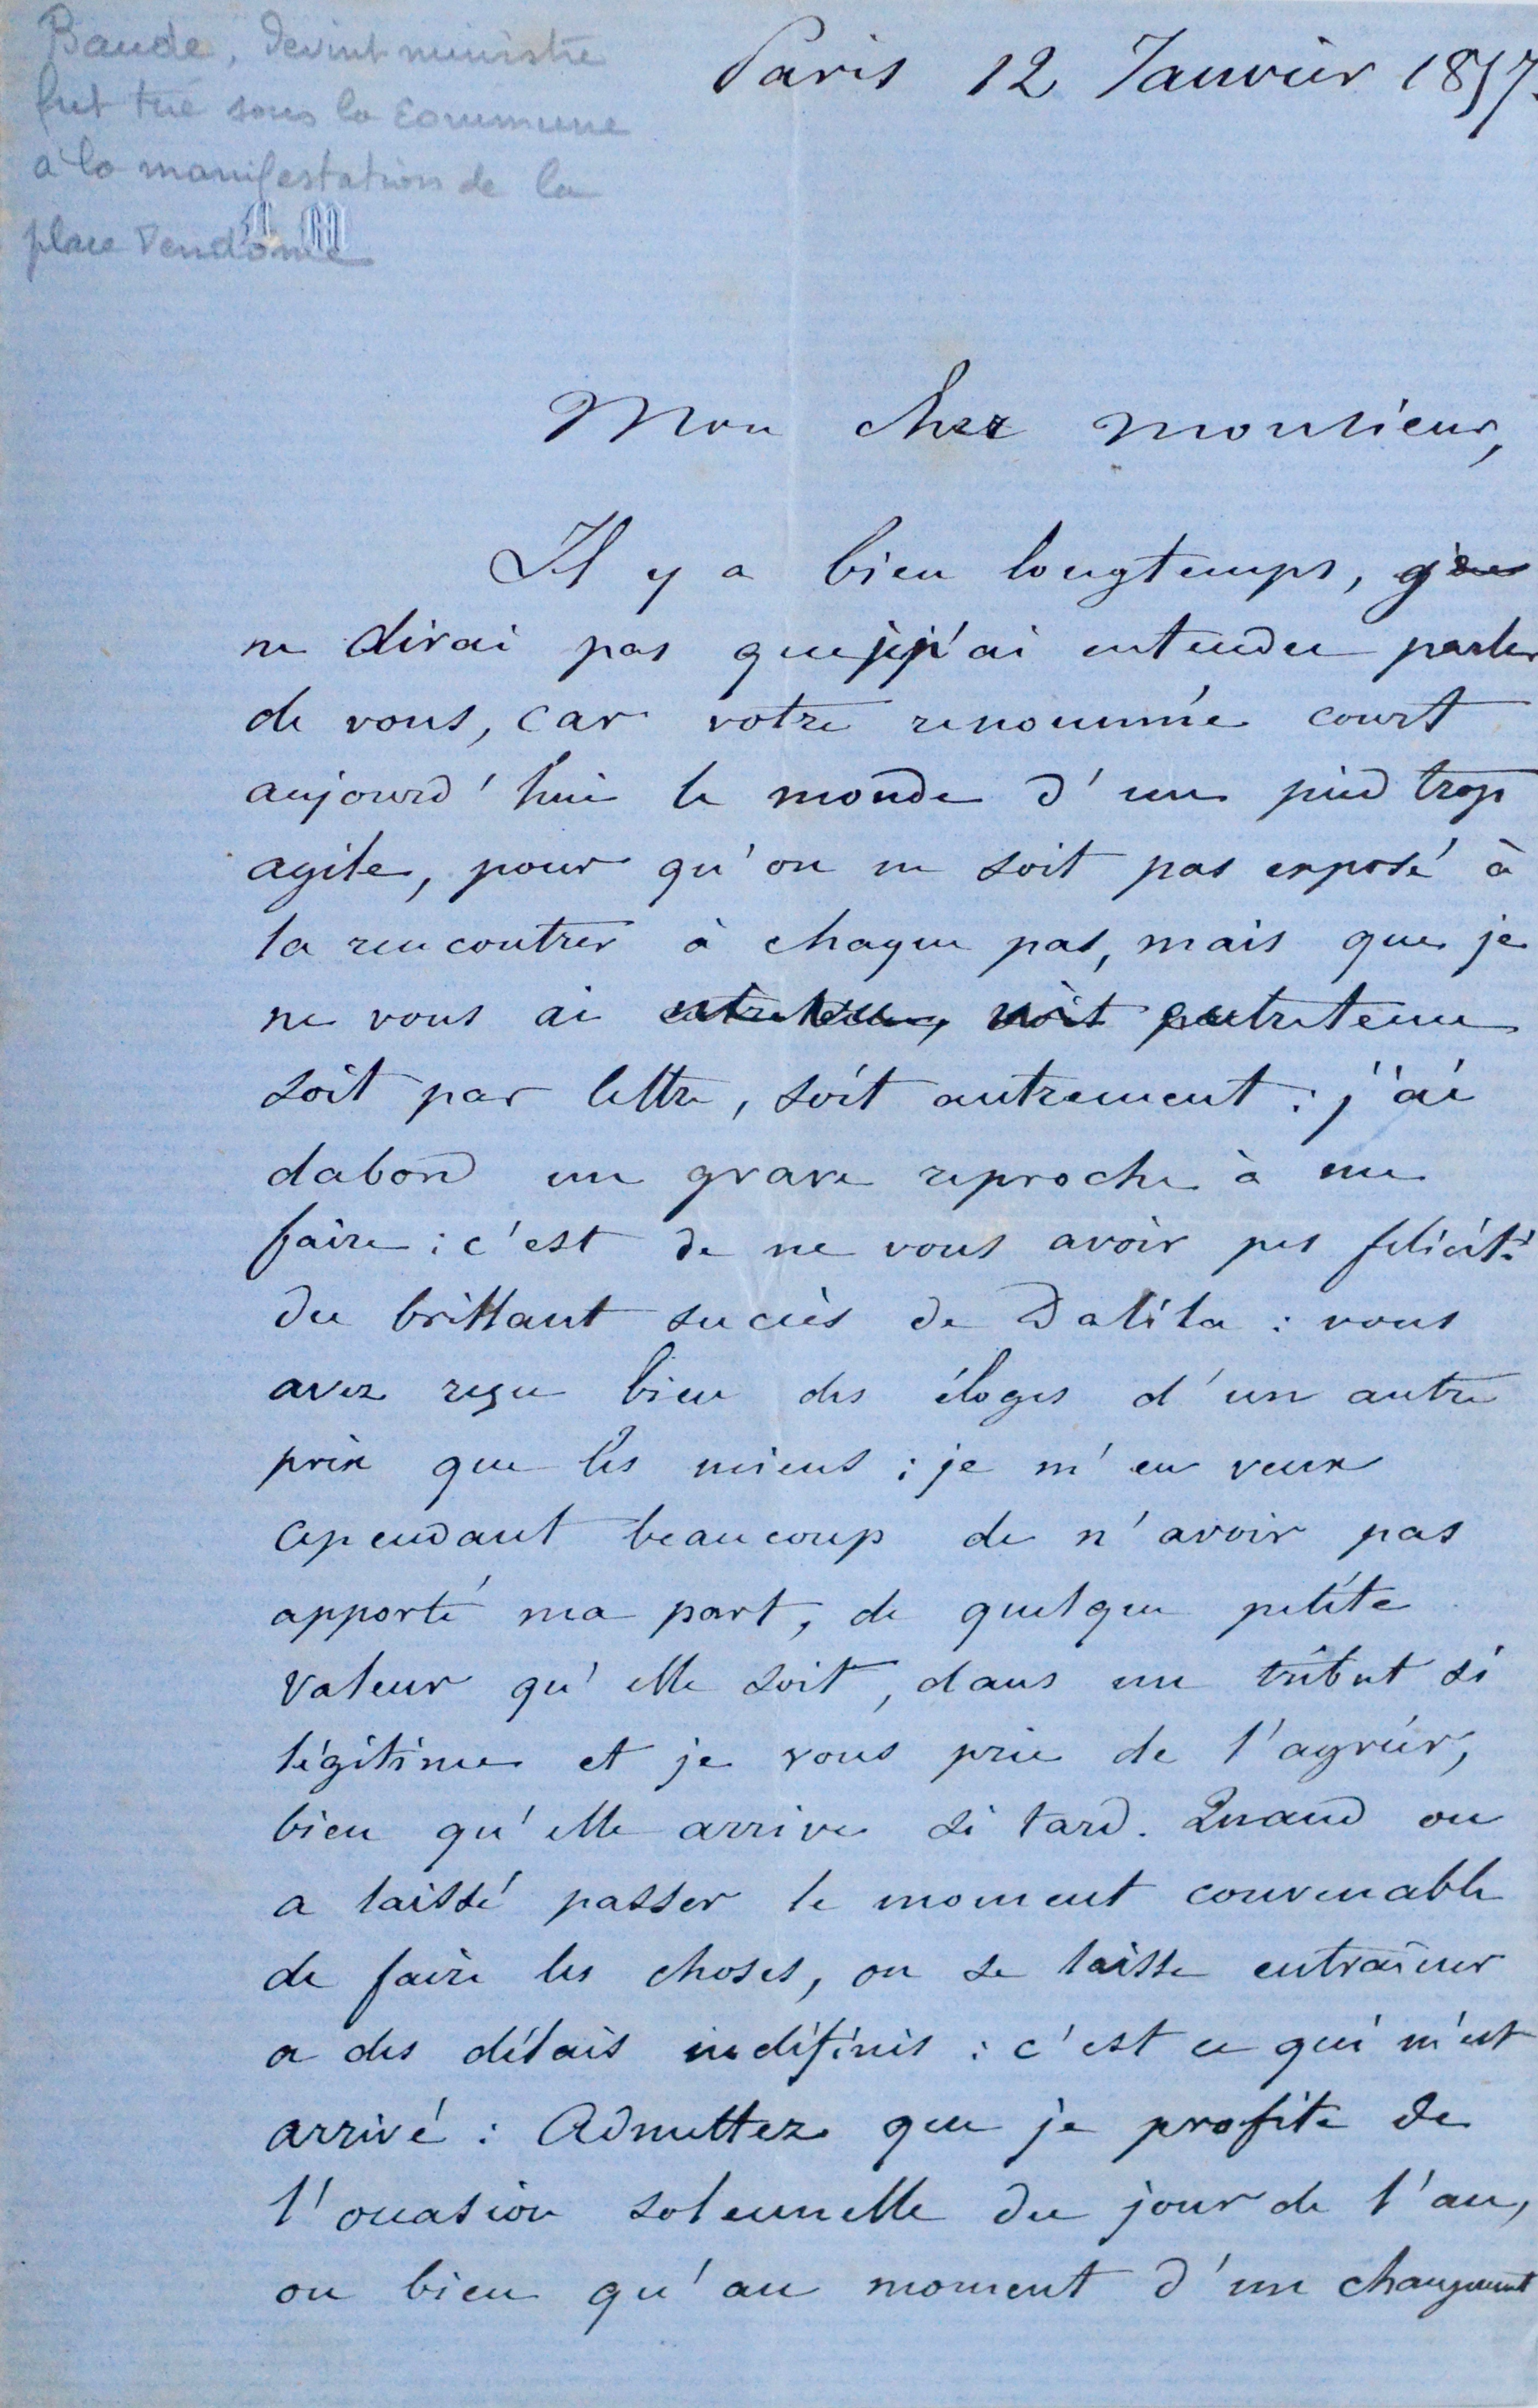 Baude, devint ministre
fut tué sous la commune
à la manifestation de la
place Vendôme
Paris 12 Janvier 1857.
Mon cher monsieur,
Il y a bien longtemps, je
ne dirai pas que j'ai entendu parler
de vous, car votre renommée court
aujourd'hui le monde d'un pied trop
agile, pour qu'on ne soit pas exposé à
la rencontrer à chaque pas, mais que je
ne vous ai entretenu, soit entretenu
soit par lettre, soit autrement : j'ai
dabord un grave reproche à me
faire : c'est de ne vous avoir pas felicité
du brillant succès de Dalila : vous
avez reçu bien des éloges d'un autre
prix que les miens ; je m'en veux
cependant beaucoup de n'avoir pas
apporté ma part, de quelque petite
valeur qu'elle soit, dans un tribut si
légitime et je vous prie de l'agréer,
bien qu'elle arrive si tard. Quand on
a laissé passer le moment convenable
de faire les choses, on se laisse entraîner
a des délais indéfinis : c'est ce qui m'est
arrivé : Admettez que je profite de
l'occasion solennelle du jour de l'an,
ou bien qu'au moment d'un changement